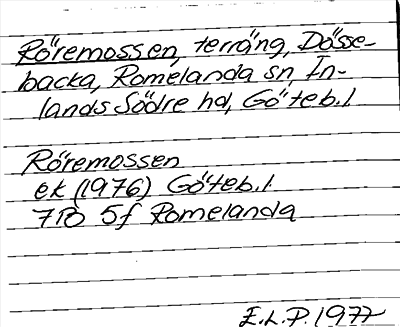 Röremossen, terräng, Dösse-
backa, Romelanda sn, In-
lands Södre hd, Göteb. l.
Röremossen
ek (1976) Göteb. l.
7B 5f Romelanda
E.L.P. 1977